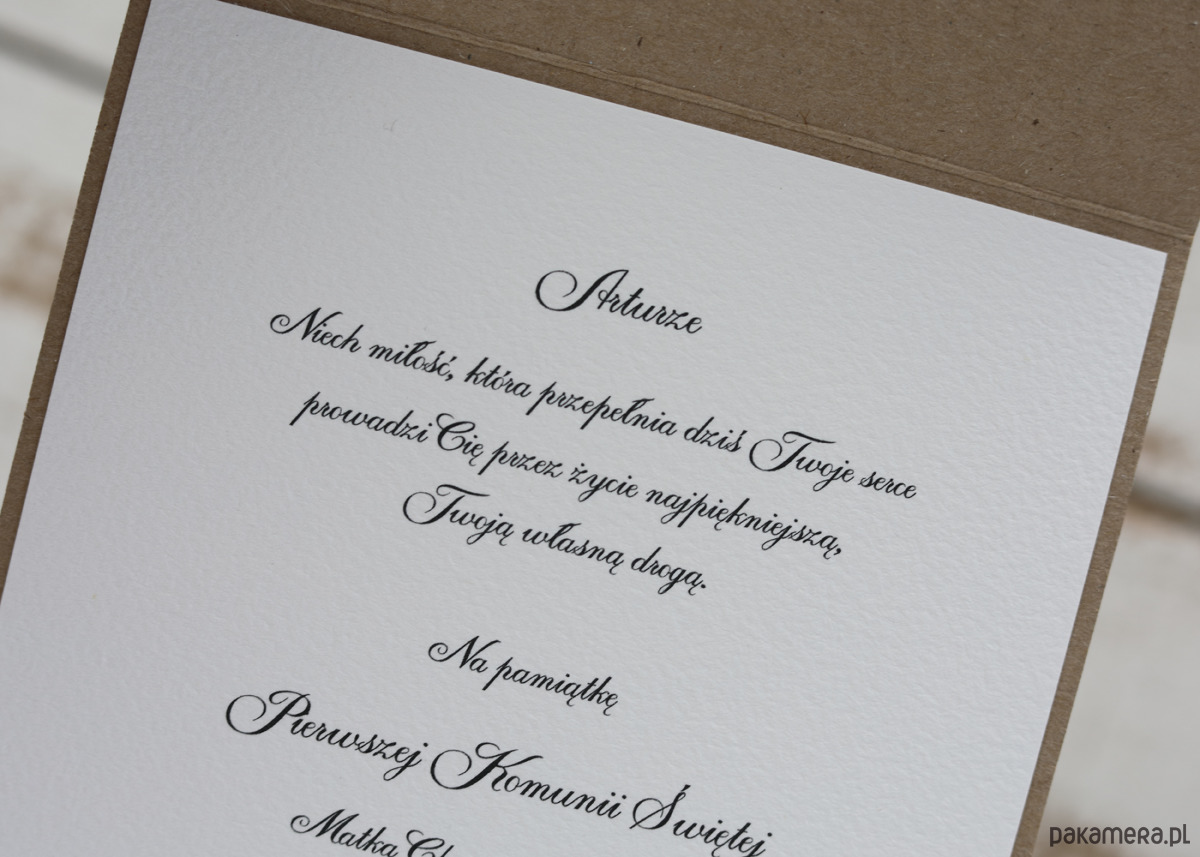 Arturze
Niech miłość, która przepełnia dziś Twoje serce
prowadzi Cię przez życie najpiękniejszą,
Twoją własną drogą.
Na pamiątkę
Pierwszej Komunii Świętej
Matka
pakamera.pl